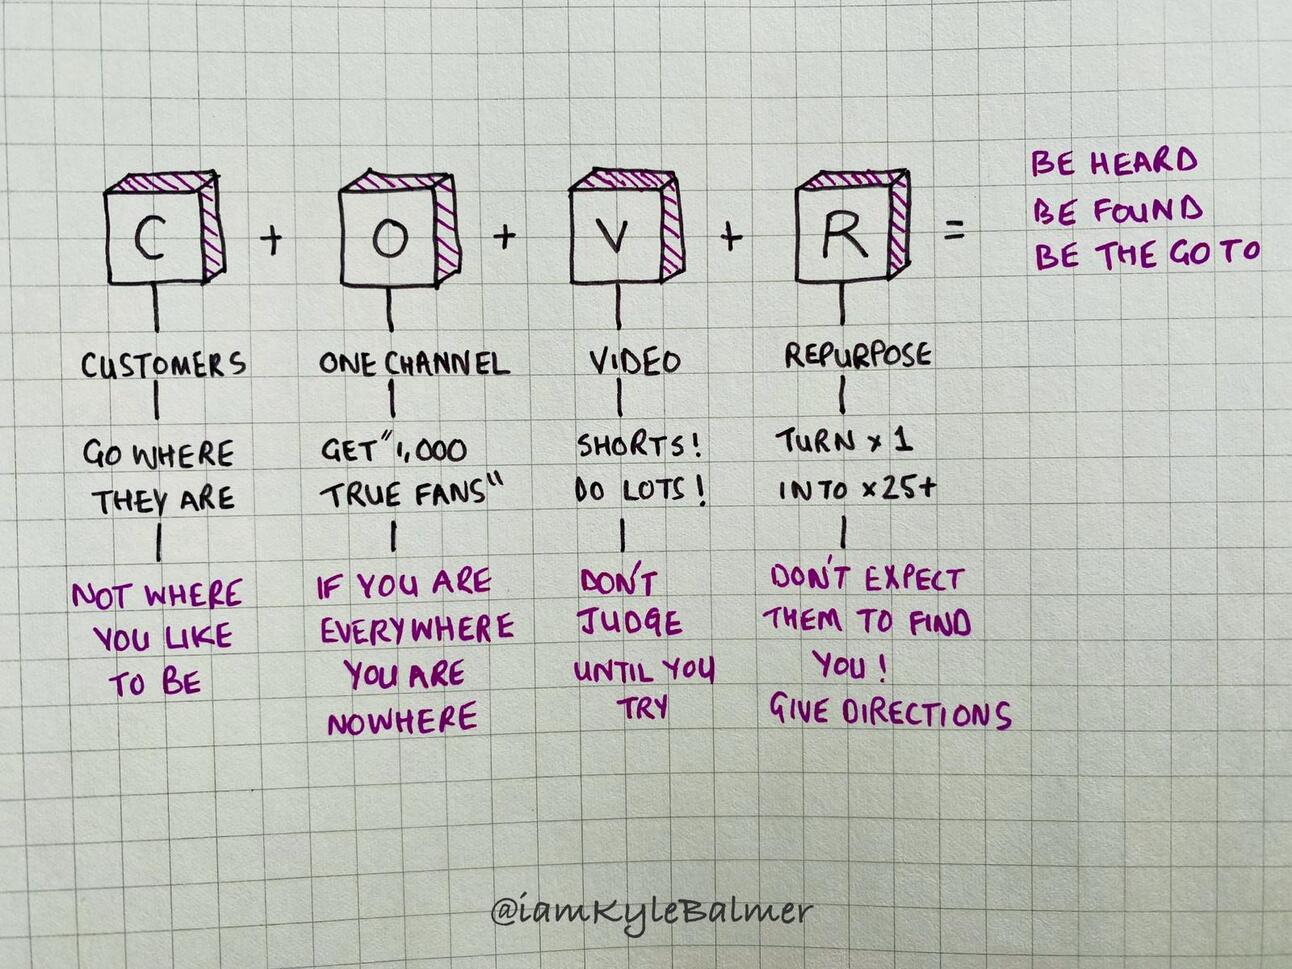 C + O + V + R =
BE HEARD
BE FOUND
BE THE GO TO
CUSTOMERS
GO WHERE
THEY ARE
NOT WHERE
YOU LIKE
TO BE
ONE CHANNEL
GET "1,000
TRUE FANS"
IF YOU ARE
EVERYWHERE
YOU ARE
NOWHERE
VIDEO
SHORTS!
DO LOTS!
DON'T
JUDGE
UNTIL YOU
TRY
REPURPOSE
TURN x 1
INTO x25+
DON'T EXPECT
THEM TO FIND
YOU!
GIVE DIRECTIONS
@iamKyleBalmer